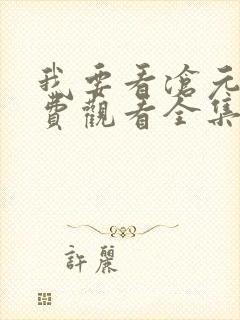 我要看滄元
費觀看全集
許麗